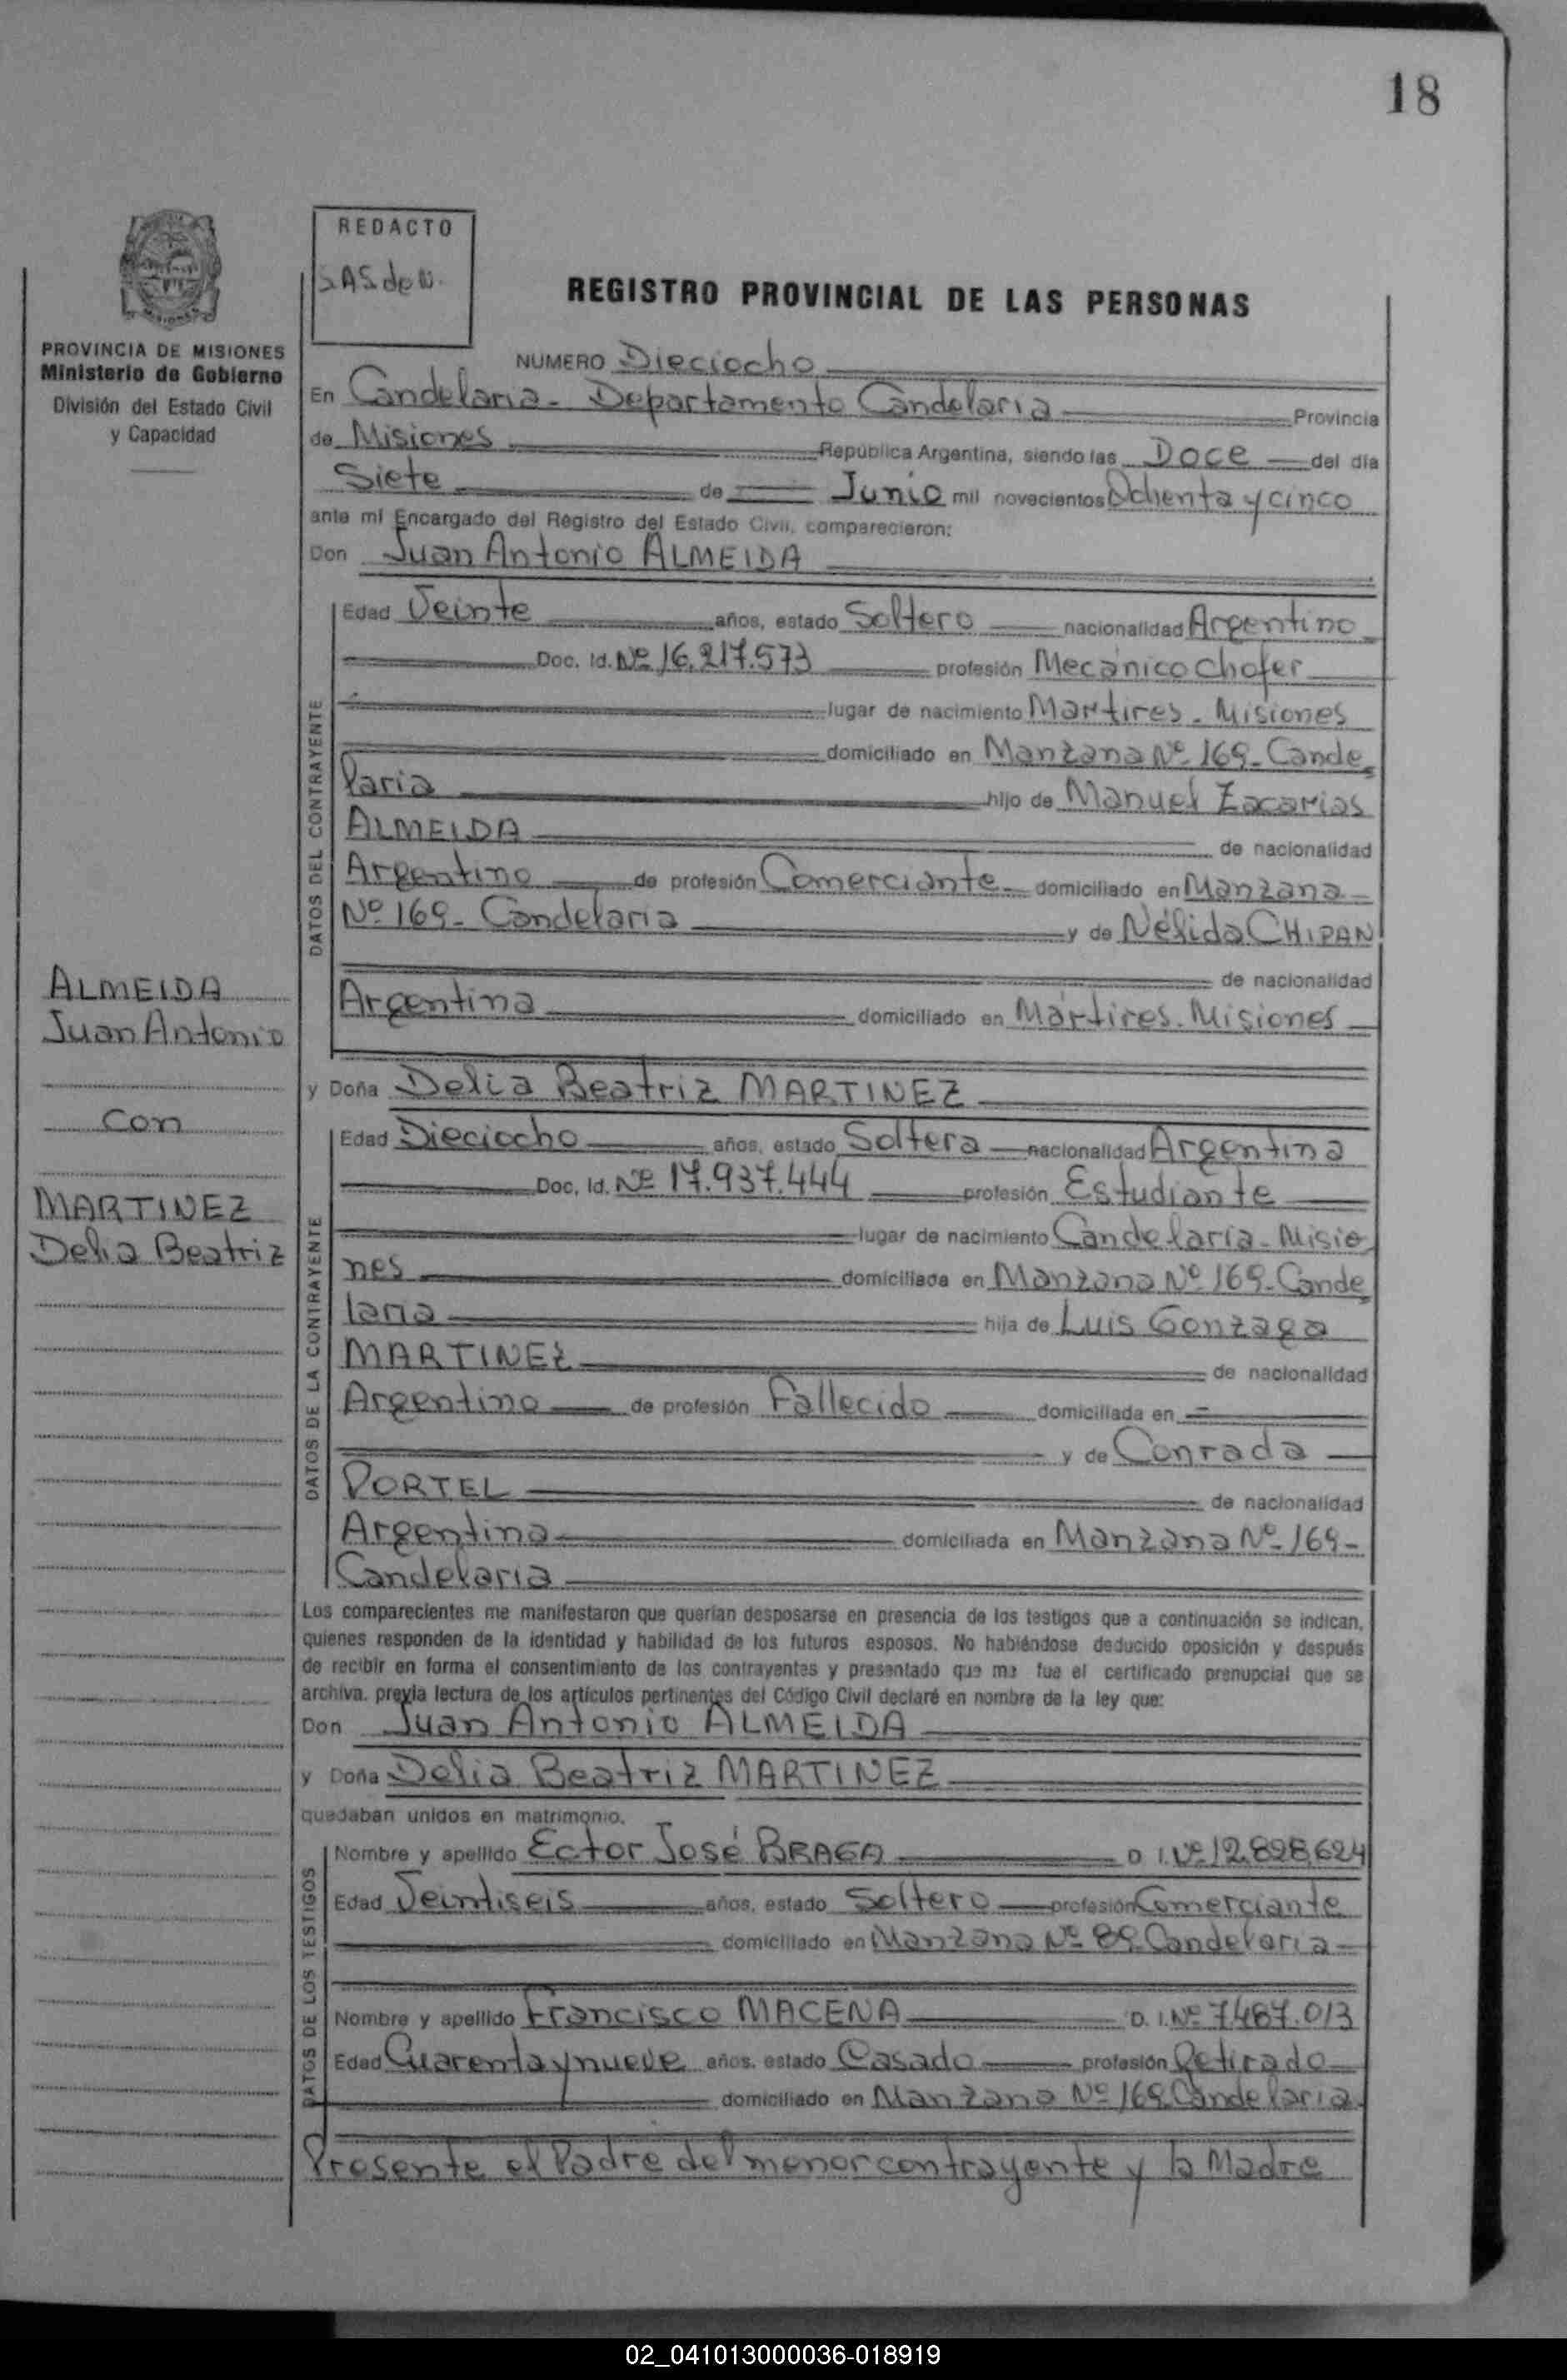 18
REDACTO
SAS de N.
REGISTRO PROVINCIAL DE LAS PERSONAS
PROVINCIA DE MISIONES
Ministerio de Gobierno
División del Estado Civil
y Capacidad
NUMERO Dieciocho
En Candelaria - Departamento Candelaria Provincia
de Misiones República Argentina, siendo las Doce del día
Siete de Junio mil novecientos Ochenta y cinco
ante mí Encargado del Registro del Estado Civil, comparecieron:
Don Juan Antonio ALMEIDA
DATOS DEL CONTRAYENTE
Edad Veinte años, estado Soltero nacionalidad Argentino
Doc. Id. Nº 16.217.573 profesión Mecánico Chofer
lugar de nacimiento Martires - Misiones
domiciliado en Manzana Nº 169 - Cande
laria hijo de Manuel Zacarias
ALMEIDA de nacionalidad
Argentino de profesión Comerciante domiciliado en Manzana
Nº 169 - Candelaria y de Nélida CHIPAN
de nacionalidad
Argentina domiciliado en Mártires. Misiones
ALMEIDA
Juan Antonio
con
MARTINEZ
Delia Beatriz
y Doña Delia Beatriz MARTINEZ
DATOS DE LA CONTRAYENTE
Edad Dieciocho años, estado Soltera nacionalidad Argentina
Doc. Id. Nº 17.937.444 profesión Estudiante
lugar de nacimiento Candelaria - Misio
nes domiciliada en Manzana Nº 169 - Cande
laria hija de Luis Gonzaga
MARTINEZ de nacionalidad
Argentino de profesión Fallecido domiciliada en -
y de Conrada
PORTEL de nacionalidad
Argentina domiciliada en Manzana Nº 169 -
Candelaria
Los comparecientes me manifestaron que querían desposarse en presencia de los testigos que a continuación se indican,
quienes responden de la identidad y habilidad de los futuros esposos. No habiéndose deducido oposición y después
de recibir en forma el consentimiento de los contrayentes y presentado que me fue el certificado prenupcial que se
archiva, previa lectura de los artículos pertinentes del Código Civil declaré en nombre de la ley que:
Don Juan Antonio ALMEIDA
y Doña Delia Beatriz MARTINEZ
quedaban unidos en matrimonio.
DATOS DE LOS TESTIGOS
Nombre y apellido Ector José BRAGA D. I. Nº 12.828.624
Edad Veintiseis años, estado Soltero profesión Comerciante
domiciliado en Manzana Nº 89 Candelaria
Nombre y apellido Francisco MACENA D. I. Nº 7.487.013
Edad Cuarenta y nueve años, estado Casado profesión Retirado
domiciliado en Manzana Nº 169 Candelaria
Presente el Padre del menor contrayente y la Madre
02_041013000036-018919